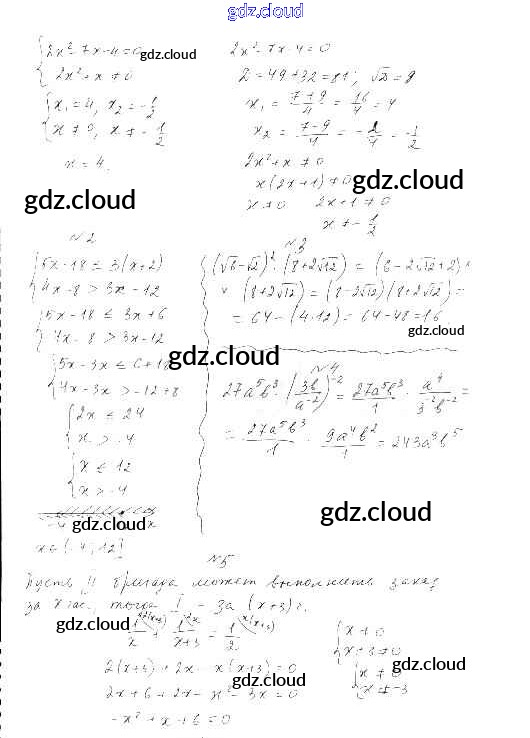 gdz.cloud
{2x²-7x-4=0
2x²+x≠0
{x₁=4, x₂=-1/2
x≠0, x≠-1/2
x=4.
gdz.cloud
2x²-7x-4=0
D=49+32=81; √D=9
x₁ = (7+9)/4 = 16/4 = 4
x₂ = (7-9)/4 = -2/4 = -1/2
2x²+x≠0
x(2x+1)≠0
gdz.cloud
x≠0 2x+1≠0
x≠-1/2
gdz.cloud
№2
{5x-18 ≤ 3(x+2)
4x-8 > 3x-12
{5x-18 ≤ 3x+6
4x-8 > 3x-12
{5x-3x ≤ 6+18
4x-3x > -12+8
gdz.cloud
{2x ≤ 24
x > -4
{x ≤ 12
x > -4
-4 x
gdz.cloud
x∈(-4;12]
№3
(√6-√2)²·(8+2√12) = (6-2√12+2)×
×(8+2√12) = (8-2√12)(8+2√12) =
= 64-(4·12) = 64-48=16
gdz.cloud
№4
27a⁵b³·(3b/a⁻²)⁻² = 27a⁵b³/1 · a⁴/3²b⁻² =
= 27a⁵b³/1 · 9a⁴b²/1 = 243a³b⁵
gdz.cloud
№5
Пусть II бригада может выполнить заказ
за x час, тогда I - за (x+3)ч.
gdz.cloud
1/x + 1/(x+3) = 1/2
2(x+3)+2x-x(x+3)=0
gdz.cloud
2x+6+2x-x²-3x=0
-x²+x+6=0
{x≠0
x+3≠0
gdz.cloud
{x≠0
x≠-3